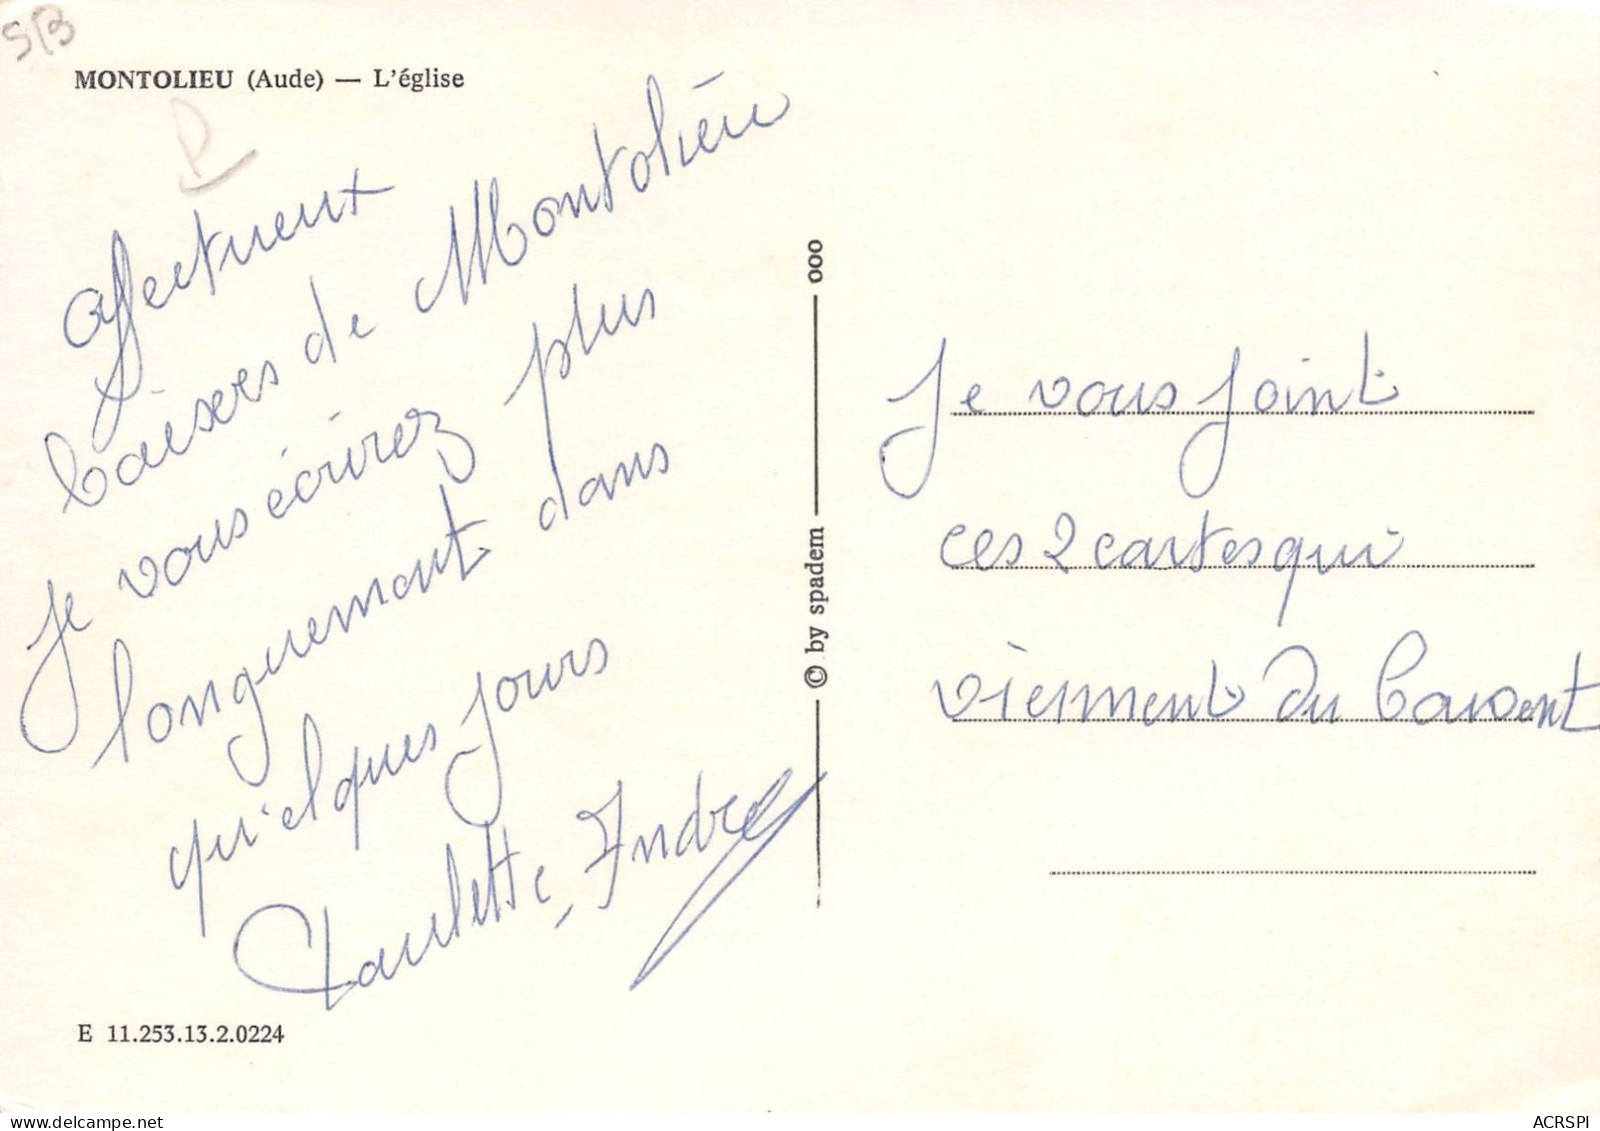 SB
MONTOLIEU (Aude) — L'église
P
affectueux
baisers de Montolieu
Je vous écrirez plus
longuement dans
quelques jours
Paulette, André
E 11.253.13.2.0224
© by spadem — 000
Je vous joint
ces 2 cartes qui
viennent du
ACRSPI